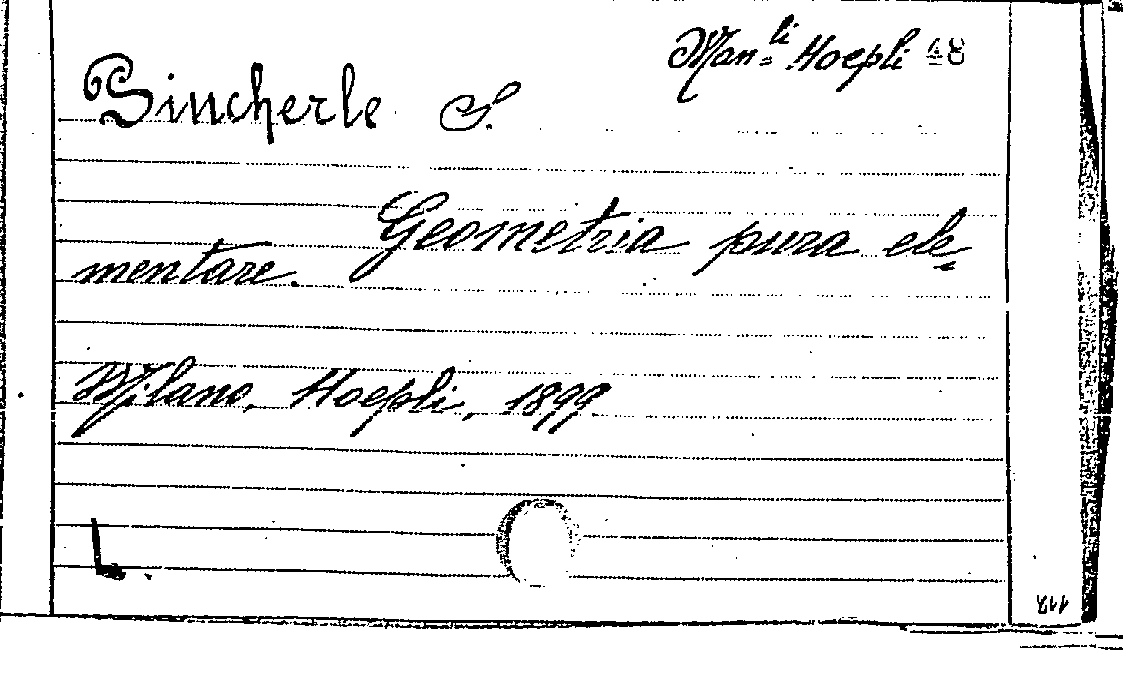 Man.li Hoepli 48
Pincherle S.
Geometria pura ele=
mentare.
Milano, Hoepli, 1899
L.